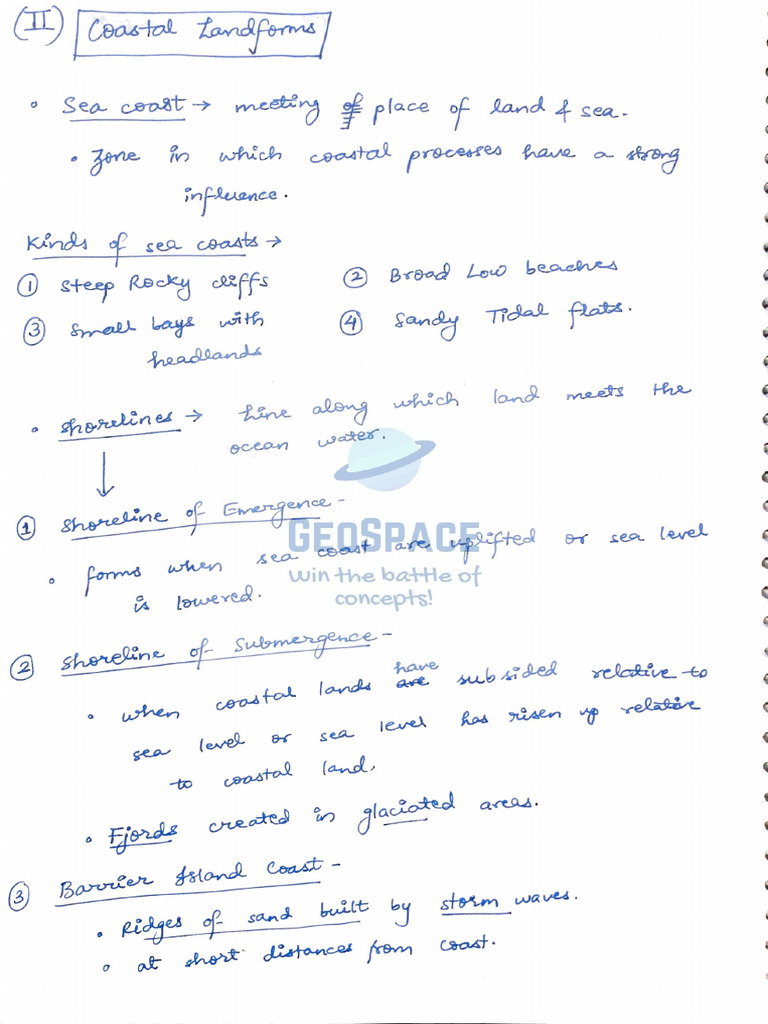 (II) Coastal Landforms
• Sea coast → meeting of place of land & sea.
• Zone in which coastal processes have a strong
influence.
Kinds of sea coasts →
① Steep Rocky cliffs ② Broad Low beaches
③ Small bays with ④ Sandy Tidal flats.
headlands
• Shorelines → Line along which land meets the
ocean water.
① Shoreline of Emergence -
GEOSPACE
• forms when sea coast are uplifted or sea level
win the battle of
is lowered.
concepts!
② Shoreline of Submergence -
• when coastal lands are have subsided relative to
sea level or sea level has risen up relative
to coastal land.
• Fjords created in glaciated areas.
③ Barrier Island Coast -
• Ridges of sand built by storm waves.
• at short distances from coast.